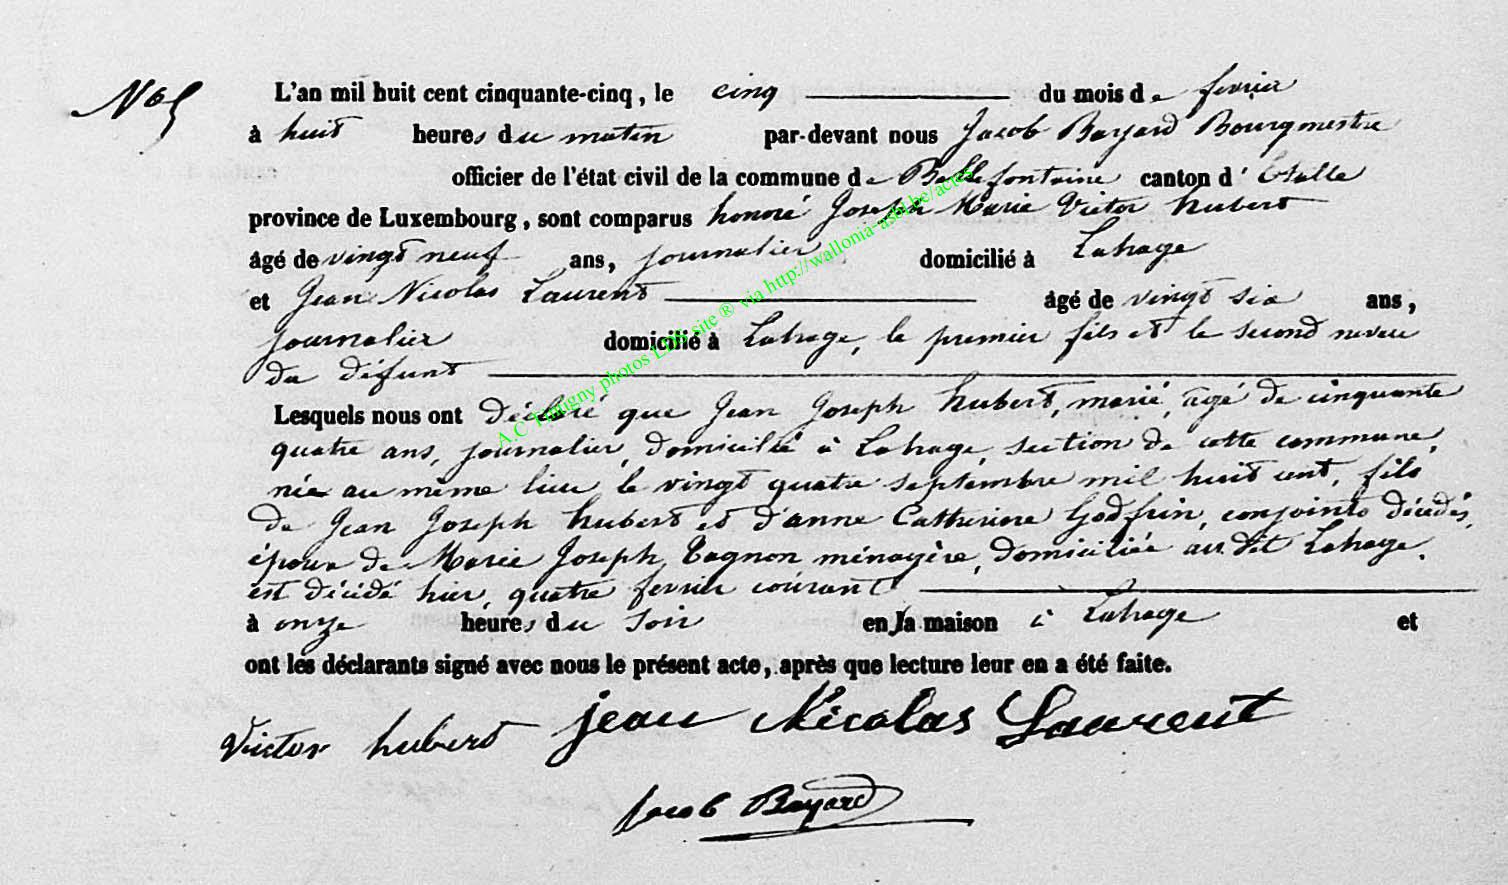 No 5
L'an mil huit cent cinquante-cinq, le cinq du mois de fevrier
à huit heures du matin par-devant nous Jacob Bayard Bourgmestre
officier de l'état civil de la commune de Bellefontaine canton d'Etalle
province de Luxembourg, sont comparus honoré Joseph Marie Victor hubert
âgé de vingt neuf ans, journalier domicilié à Lahage
et Jean Nicolas Laurent âgé de vingt six ans,
journalier domicilié à Lahage, le premier fils et le second neveu
du défunt
Lesquels nous ont déclaré que Jean Joseph hubert, marié, agé de cinquante
quatre ans, journalier, domicilié à Lahage, section de cette commune,
née au même lieu le vingt quatre septembre mil huit cent, fils
de Jean Joseph hubert et d'anne Catherine Godfrin, conjoints décédés,
époux de Marie Joseph Tagnon ménagère, domiciliée au dit Lahage,
est décédé hier, quatre fevrier courant
à onze heures du soir en la maison à Lahage et
ont les déclarants signé avec nous le présent acte, après que lecture leur en a été faite.
Victor hubert jean Nicolas Laurent
Jacob Bayard
A.C Tintigny photos Luc site ® via http://wallonia-asbl.be/actes